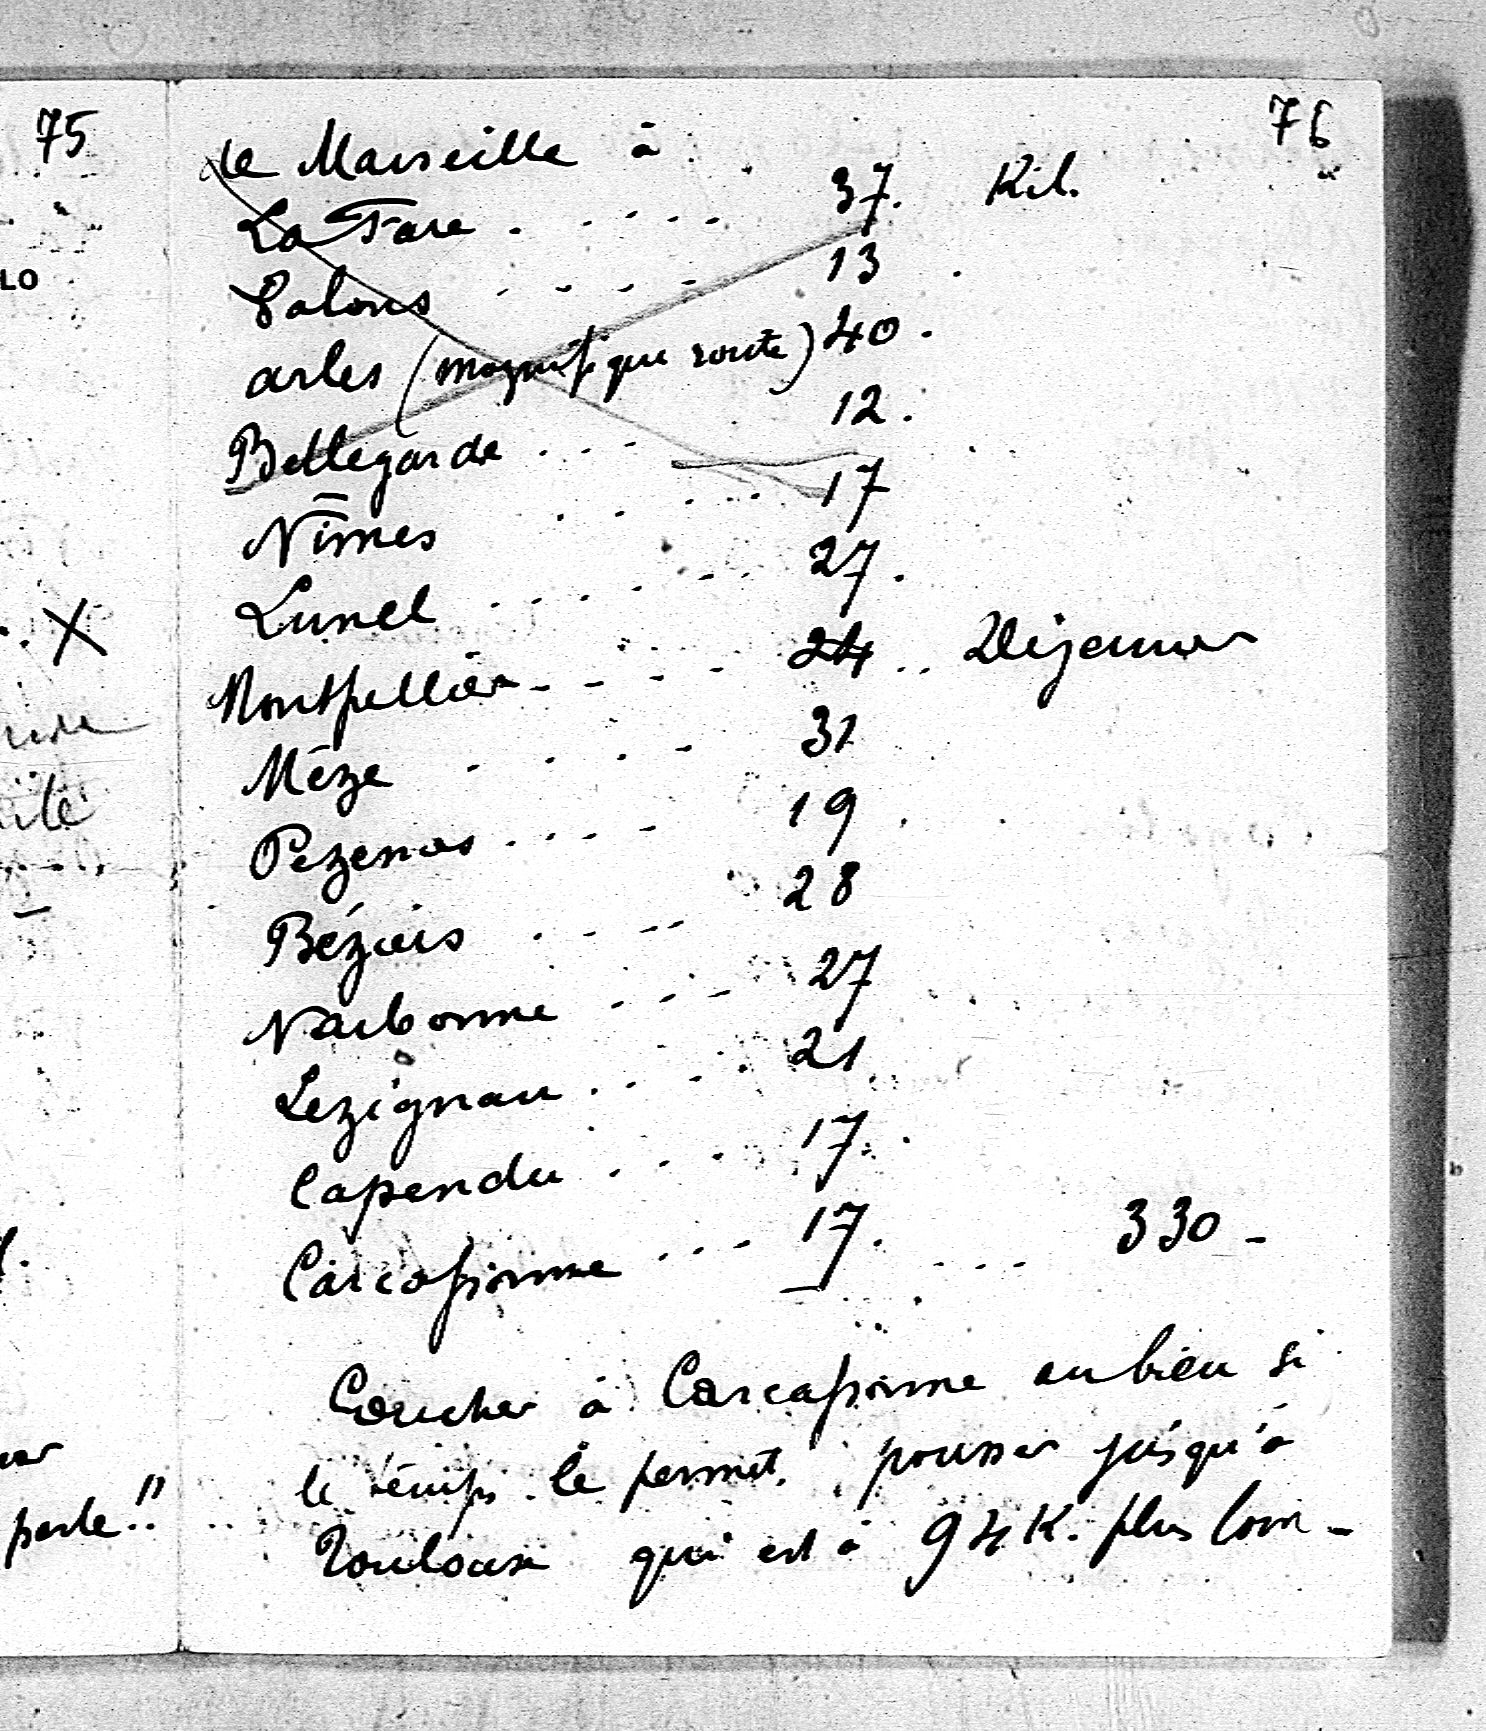 75
LO
. X
perle!!
76
de Marseille à
La Fare . . . . . 37. Kil.
Salons . . . . . 13
arles (magnifique route) 40.
Bellegarde . . . 12.
Nîmes . . . . . 17
Lunel . . . . . 27.
Montpellier - - - - - 24 .. Déjeuner
Mèze . . . . . 31
Pezenas . . . . 19
Béziers . . . . 28
Narbonne . . . . 27
Lezignan . . . . 21
Capendu . . . . 17.
Carcassonne . . . 17. . . . 330 -
Coucher à Carcassonne ou bien si
le temps le permet, pousser jusqu'à
Toulouse qui est à 94 K. plus loin -